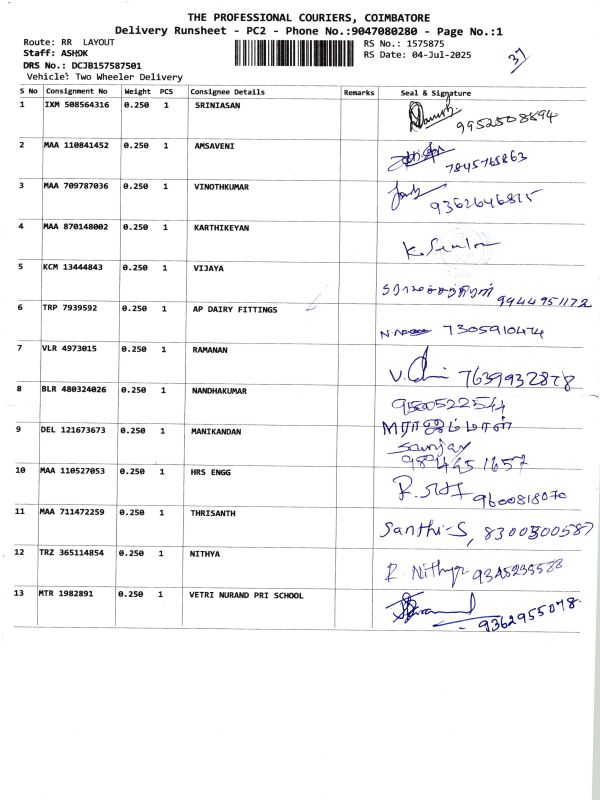 THE PROFESSIONAL COURIERS, COIMBATORE
Delivery Runsheet - PC2 - Phone No.:9047080280 - Page No.:1
Route: RR LAYOUT
RS No.: 1575875
37
Staff: ASHOK
RS Date: 04-Jul-2025
DRS No.: DCJB157587501
Vehicle: Two Wheeler Delivery
S No Consignment No Weight PCS Consignee Details Remarks Seal & Signature
1 IXM 508564316 0.250 1 SRINIASAN
9952508894
2 MAA 110841452 0.250 1 AMSAVENI
7845765863
3 MAA 709787036 0.250 1 VINOTHKUMAR
9362646815
4 MAA 870148002 0.250 1 KARTHIKEYAN
5 KCM 13444843 0.250 1 VIJAYA
9944951172
6 TRP 7939592 0.250 1 AP DAIRY FITTINGS
7305910474
7 VLR 4973015 0.250 1 RAMANAN
7639932878
8 BLR 480324026 0.250 1 NANDHAKUMAR
9500522544
9 DEL 121673673 0.250 1 MANIKANDAN
Sanjay
10 MAA 110527053 0.250 1 HRS ENGG
9600818070
11 MAA 711472259 0.250 1 THRISANTH
Santhi-S, 8300300587
12 TRZ 365114854 0.250 1 NITHYA
R. Nithya 9345235588
13 MTR 1982891 0.250 1 VETRI NURAND PRI SCHOOL
9362955078